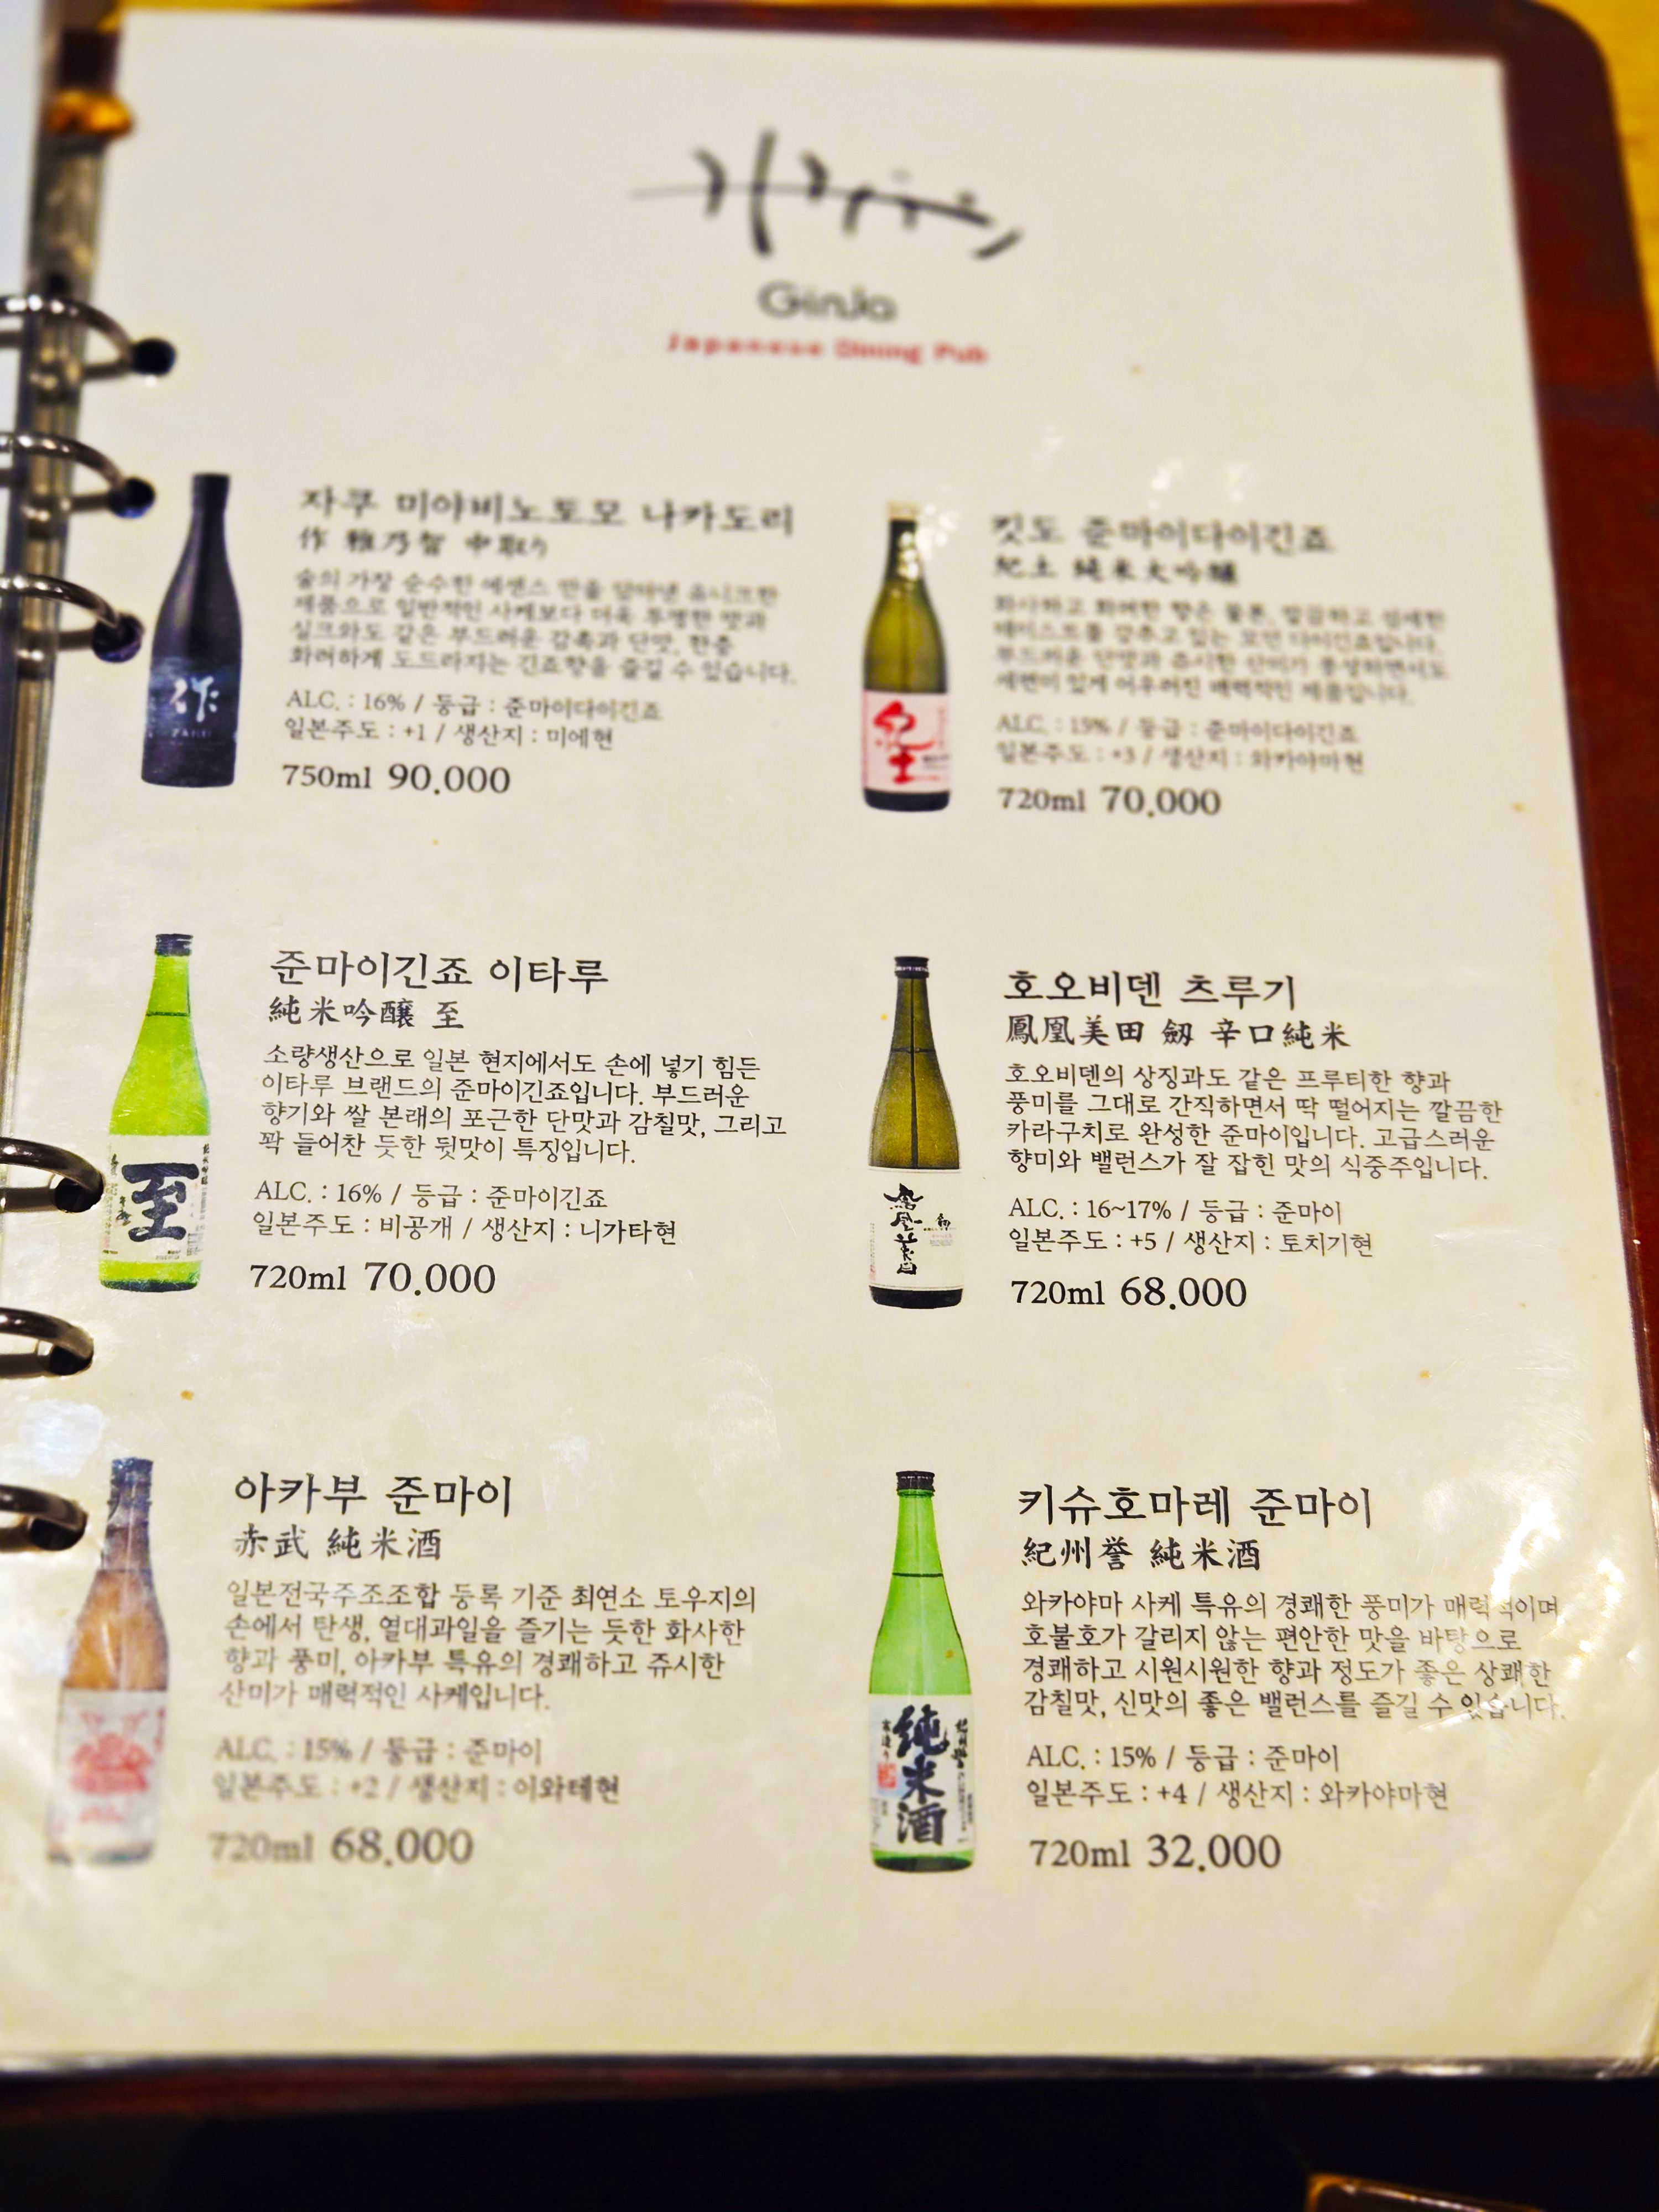 GinJo
Japanese Dining Pub
자쿠 미야비노토모 나카도리
作 雅乃智 中取り
술의 가장 순수한 에센스 만을 담아낸 유니크한
제품으로 일반적인 사케보다 더욱 투명한 맛과
실크와도 같은 부드러운 감촉과 단맛, 한층
화려하게 도드라지는 긴죠향을 즐길 수 있습니다.
ALC. : 16% / 등급 : 준마이다이긴죠
일본주도 : +1 / 생산지 : 미에현
750ml 90,000
作
ZAKU
킷도 준마이다이긴죠
紀土 純米大吟醸
화사하고 화려한 향은 물론, 깔끔하고 섬세한
테이스트를 갖추고 있는 모던 다이긴죠입니다.
부드러운 단맛과 쥬시한 산미가 풍성하면서도
세련미 있게 어우러진 매력적인 제품입니다.
ALC. : 15% / 등급 : 준마이다이긴죠
일본주도 : +3 / 생산지 : 와카야마현
720ml 70,000
紀土
준마이긴죠 이타루
純米吟醸 至
소량생산으로 일본 현지에서도 손에 넣기 힘든
이타루 브랜드의 준마이긴죠입니다. 부드러운
향기와 쌀 본래의 포근한 단맛과 감칠맛, 그리고
꽉 들어찬 듯한 뒷맛이 특징입니다.
ALC. : 16% / 등급 : 준마이긴죠
일본주도 : 비공개 / 생산지 : 니가타현
720ml 70,000
至
호오비덴 츠루기
鳳凰美田 劔 辛口純米
호오비덴의 상징과도 같은 프루티한 향과
풍미를 그대로 간직하면서 딱 떨어지는 깔끔한
카라구치로 완성한 준마이입니다. 고급스러운
향미와 밸런스가 잘 잡힌 맛의 식중주입니다.
ALC. : 16~17% / 등급 : 준마이
일본주도 : +5 / 생산지 : 토치기현
720ml 68,000
鳳凰美田
劔
아카부 준마이
赤武 純米酒
일본전국주조조합 등록 기준 최연소 토우지의
손에서 탄생, 열대과일을 즐기는 듯한 화사한
향과 풍미, 아카부 특유의 경쾌하고 쥬시한
산미가 매력적인 사케입니다.
ALC. : 15% / 등급 : 준마이
일본주도 : +2 / 생산지 : 이와테현
720ml 68,000
키슈호마레 준마이
紀州誉 純米酒
와카야마 사케 특유의 경쾌한 풍미가 매력적이며,
호불호가 갈리지 않는 편안한 맛을 바탕으로
경쾌하고 시원시원한 향과 정도가 좋은 상쾌한
감칠맛, 신맛의 좋은 밸런스를 즐길 수 있습니다.
ALC. : 15% / 등급 : 준마이
일본주도 : +4 / 생산지 : 와카야마현
720ml 32,000
紀州誉
純米酒